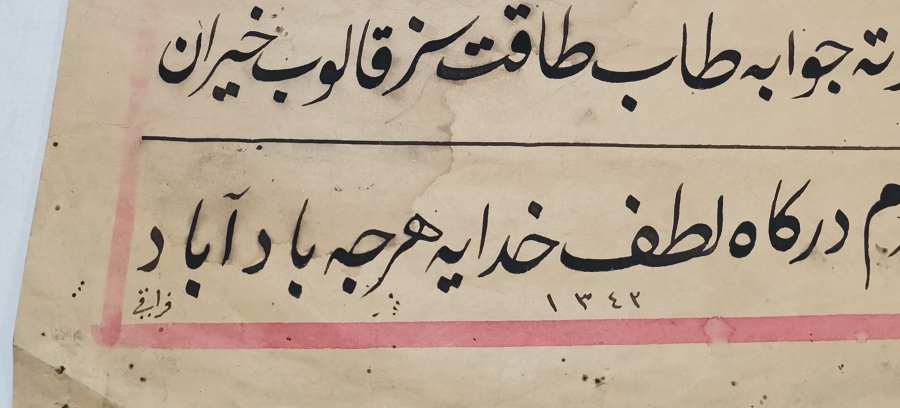 رته جوابه طاب طاقت سز قالوب خیران
م درکاه لطف خدایه هرجه باد آباد
١٣٤٢